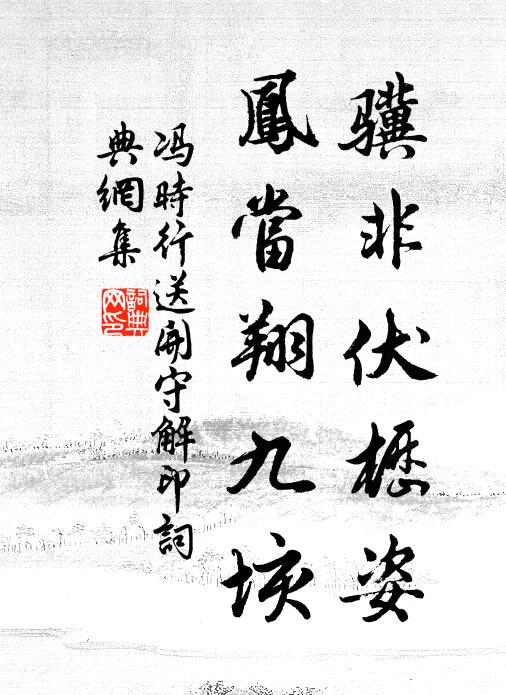 骥非伏櫪姿
鳳當翔九垓
冯時行送開守解印詞
典網集
詞典網印